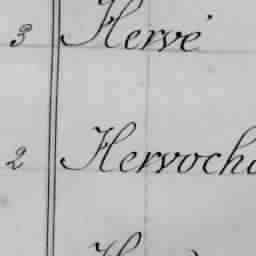 3 Hervé
2 Hervocho